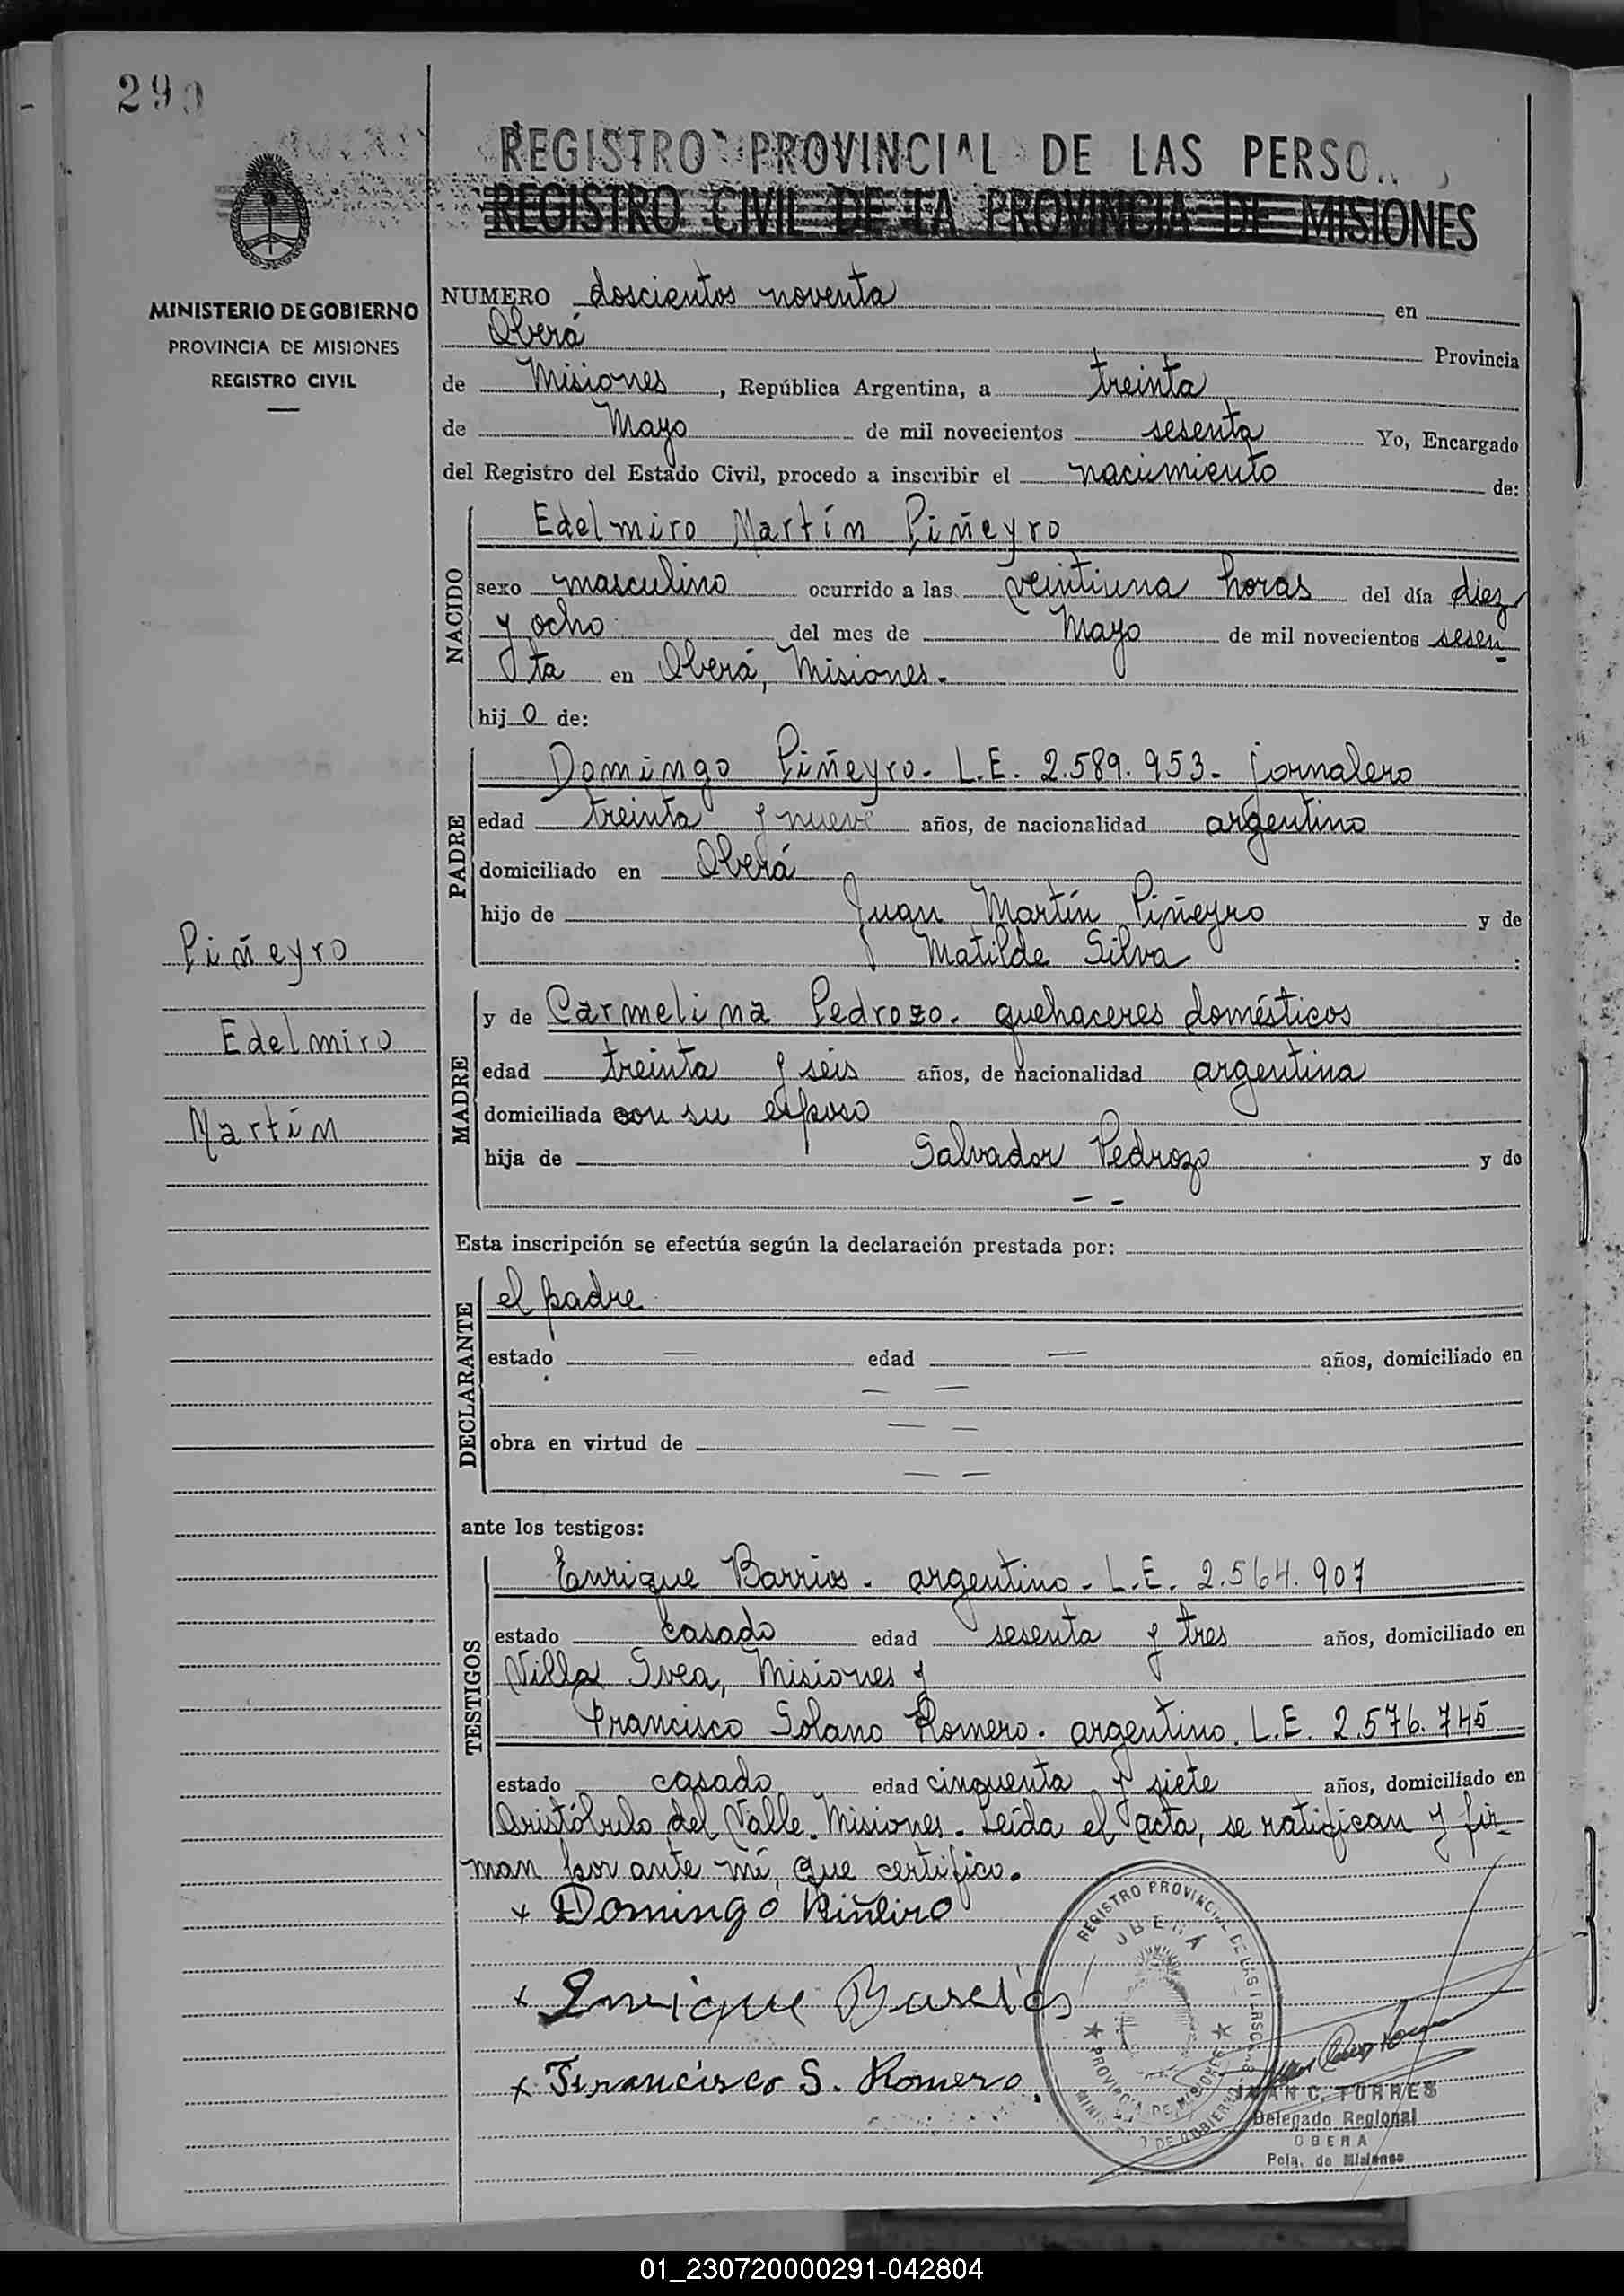 290
REGISTRO PROVINCIAL DE LAS PERSO
REGISTRO CIVIL DE LA PROVINCIA DE MISIONES
MINISTERIO DE GOBIERNO
PROVINCIA DE MISIONES
REGISTRO CIVIL
NUMERO doscientos noventa en
Oberá Provincia
de Misiones, República Argentina, a treinta
de Mayo de mil novecientos sesenta Yo, Encargado
del Registro del Estado Civil, procedo a inscribir el nacimiento de:
NACIDO
Edelmiro Martín Piñeyro
sexo masculino ocurrido a las veintiuna horas del día diez
y ocho del mes de Mayo de mil novecientos sesen
ta en Oberá, Misiones.
hijo de:
PADRE
Domingo Piñeyro. L.E. 2.589.953. jornalero
edad treinta y nueve años, de nacionalidad argentino
domiciliado en Oberá
hijo de Juan Martín Piñeyro y de
Matilde Silva :
Piñeyro
Edelmiro
Martín
MADRE
y de Carmelina Pedrozo. quehaceres domésticos
edad treinta y seis años, de nacionalidad argentina
domiciliada con su esposo
hija de Salvador Pedrozo y de
- -
Esta inscripción se efectúa según la declaración prestada por:
DECLARANTE
el padre
estado — edad — años, domiciliado en
— —
obra en virtud de — —
— —
ante los testigos:
TESTIGOS
Enrique Barrios. argentino. L.E. 2.564.907
estado casado edad sesenta y tres años, domiciliado en
Villa Svea, Misiones y
Francisco Solano Romero. argentino. L.E. 2.576.745
estado casado edad cincuenta y siete años, domiciliado en
Aristóbulo del Valle. Misiones. Leída el acta, se ratifican y fir-
man por ante mí, que certifico.
x Domingo Piñeiro
x Enrique Barrios
x Francisco S. Romero.
REGISTRO PROVINCIAL DE LAS PERSONAS
OBERÁ
PROVINCIA DE MISIONES
MINISTERIO DE GOBIERNO
JUAN C. TORRES
Delegado Regional
OBERA
Pcia. de Misiones
01_230720000291-042804